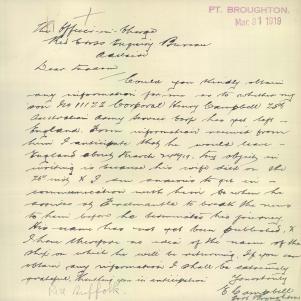 PT. BROUGHTON.
Mar 31 1919
The Officer in Charge
Red Cross Enquiry Bureau
Adelaide
Dear Madam
Could you kindly obtain
any information for me as to whether my
son No 11122 Corporal Henry Campbell 25th
Australian Army Service Corp has yet left
England. From information received from
him I anticipate that he would leave
England about March 20th/19. My object in
writing is because his wife died on the
and I am anxious to get in
communication with him when he
arrives at Freemantle to break the news
to him before he terminates his journey.
His name has not yet been published &
I have therefore no idea of the name of the
ship on which he will be returning. If you can
obtain any information I shall be extremely
grateful. Thanking you in anticipation
Yours faithfully
E Campbell
Port Broughton
Suffolk